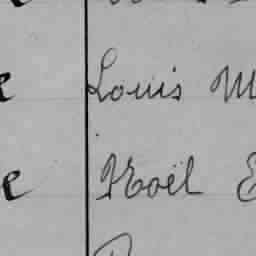 e Louis M
e Noël E